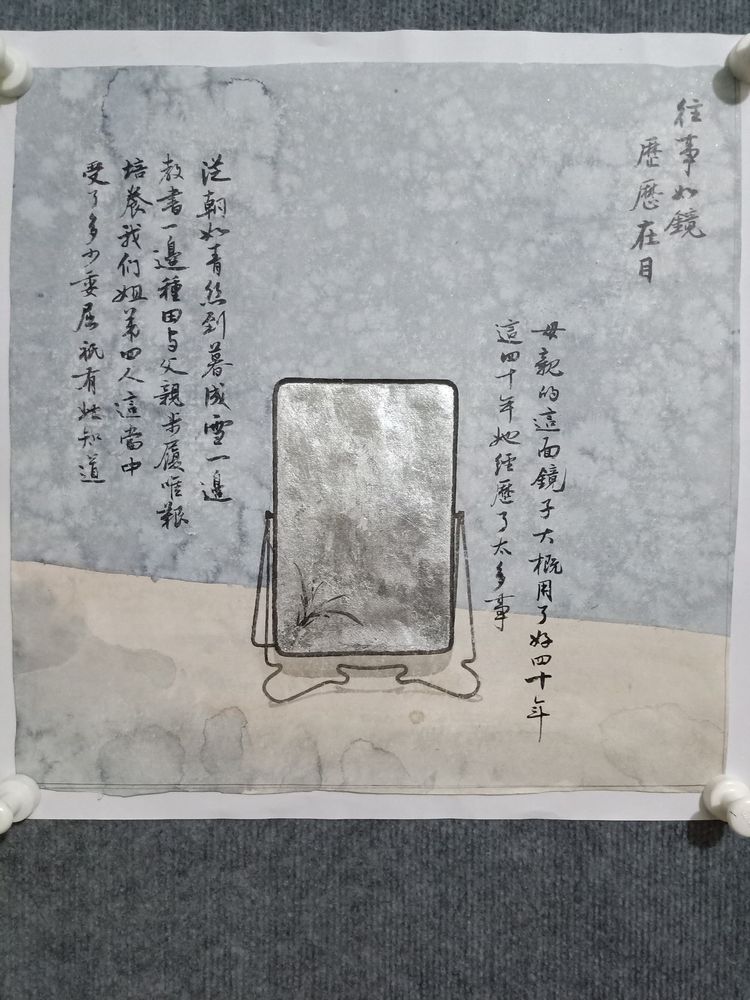 往事如鏡
歷歷在目
母親的這面鏡子大概用了好四十年
這四十年她經歷了太多事
從朝如青絲到暮成雪一邊
教書一邊種田与父親步履唯艱
培養我们姐弟四人這當中
受了多少委屈祇有她知道